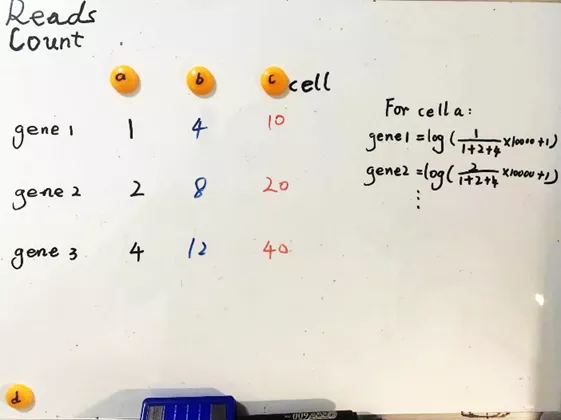 Reads
Count
a b c cell
gene 1 1 4 10
gene 2 2 8 20
gene 3 4 12 40
For cell a:
gene1 = log( 1/1+2+4 ×10000+1)
gene2 = log( 2/1+2+4 ×10000+1)
⋮
d